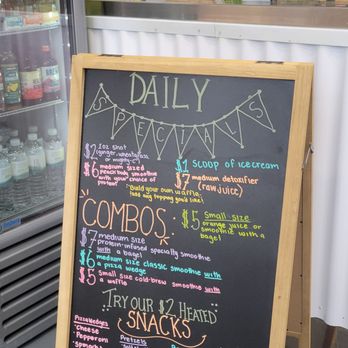 DAILY
SPECIALS
$2 2oz shot
(ginger, wheatgrass
$6 medium sized
peach body smoothie
with your choice of
protein!
$1 SCOOP of icecream
$7 medium detoxifier
(raw juice)
Build your own waffle.
add any topping you'd like!
COMBOS
$7 medium size
protein-infused specialty smoothie
with a bagel
$6 medium size classic smoothie with
a pizza wedge
$5 small size cold-brew smoothie with
a waffle
$5 Small size
orange juice or
smoothie with a
bagel
TRY OUR $2 HEATED
SNACKS
Pizza Wedges
*Cheese
*Pepperoni
Pretzels